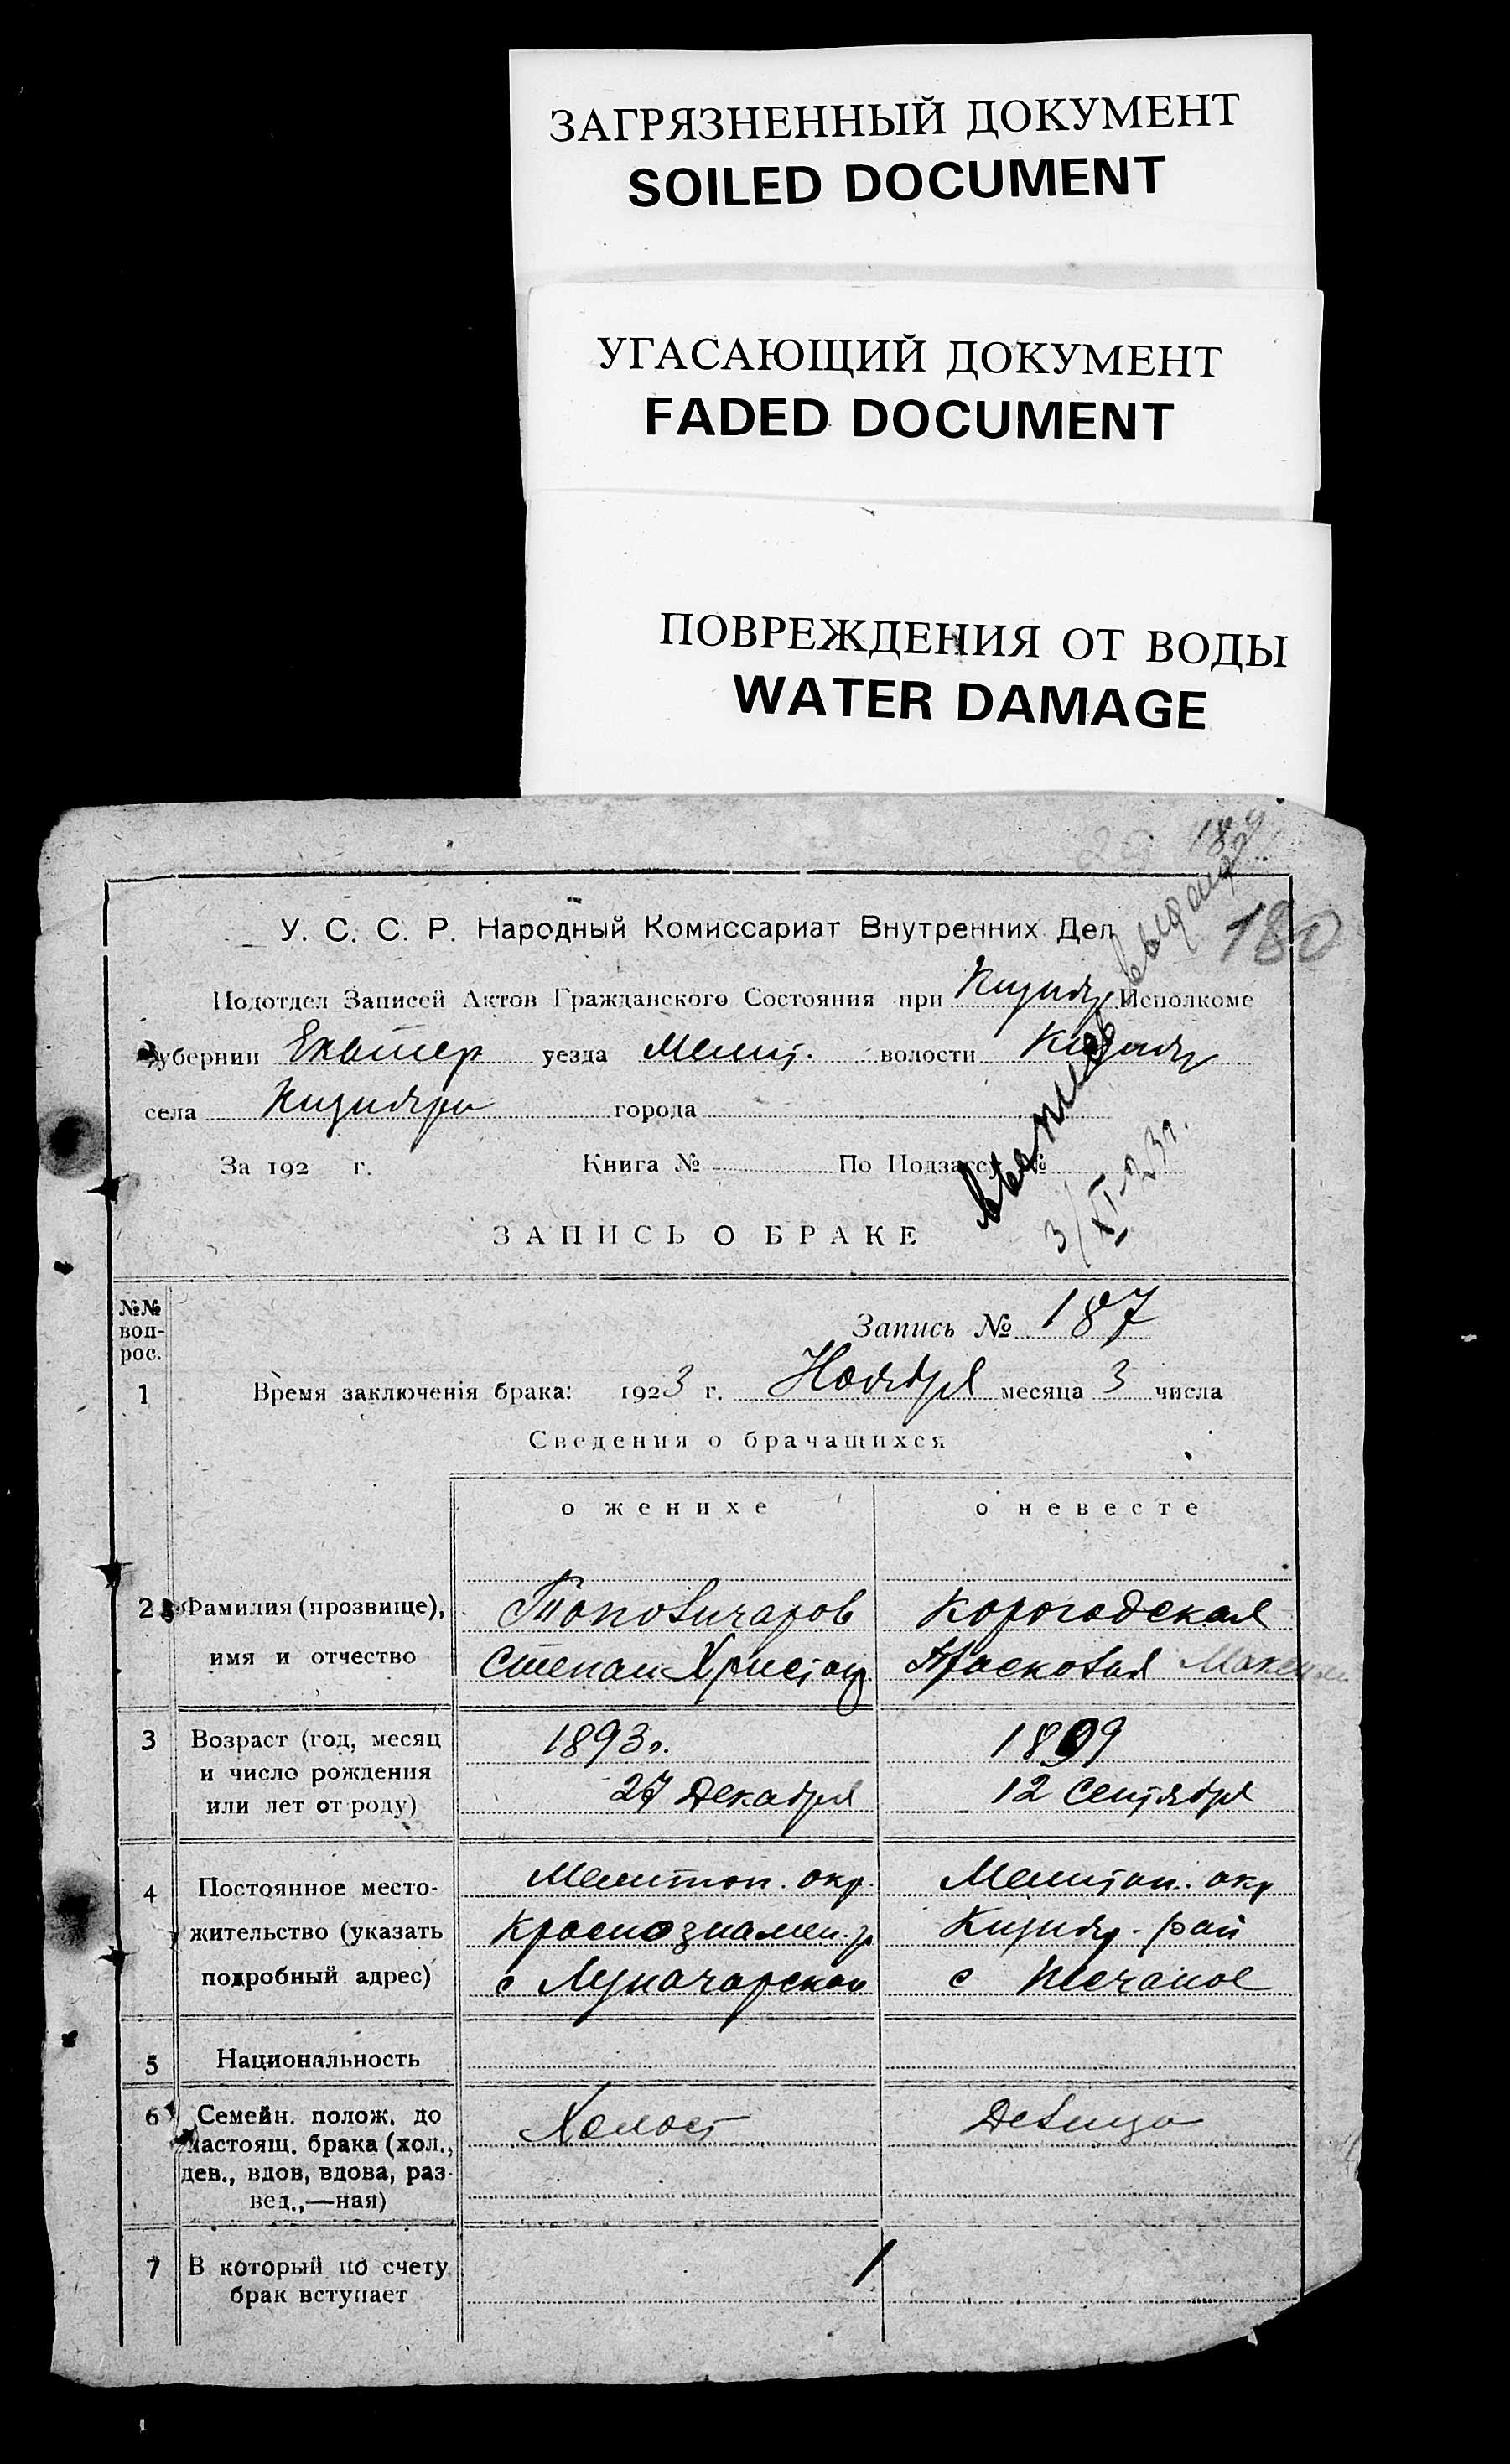 ЗАГРЯЗНЕННЫЙ ДОКУМЕНТ
SOILED DOCUMENT
УГАСАЮЩИЙ ДОКУМЕНТ
FADED DOCUMENT
ПОВРЕЖДЕНИЯ ОТ ВОДЫ
WATER DAMAGE
180
У. С. С. Р. Народный Комиссариат Внутренних Дел
Подотдел Записей Актов Гражданского Состояния при Кизияр Исполкоме
губернии Екатер уезда Мелит. волости Кизияр
села Кизияри города
За 192 г. Книга № По Подзагсу №
выпись выдана
3/XI-23г.
ЗАПИСЬ О БРАКЕ
№№ воп-рос.
Запись № 187
1 Время заключенія брака: 1923 г. Ноября месяца 3 числа
Сведения о брачащихся
о женихе о невесте
2 Фамилия (прозвище), Корогодская
имя и отчество Степан Христоф Прасковья Максим
3 Возраст (год, месяц 1893г. 1899
и число рождения 27 Декабря 12 Сентября
или лет от роду)
4 Постоянное место- Мелитоп. окр. Мелитоп. окр
жительство (указать Краснознамен. р Кизияр. рай
подробный адрес) с Луначарское с Песчаное
5 Национальность
6 Семейн. полож. до Холост Девица
настоящ. брака (хол.,
дев., вдов, вдова, раз-
вед.,—ная)
7 В который по счету 1
брак вступает